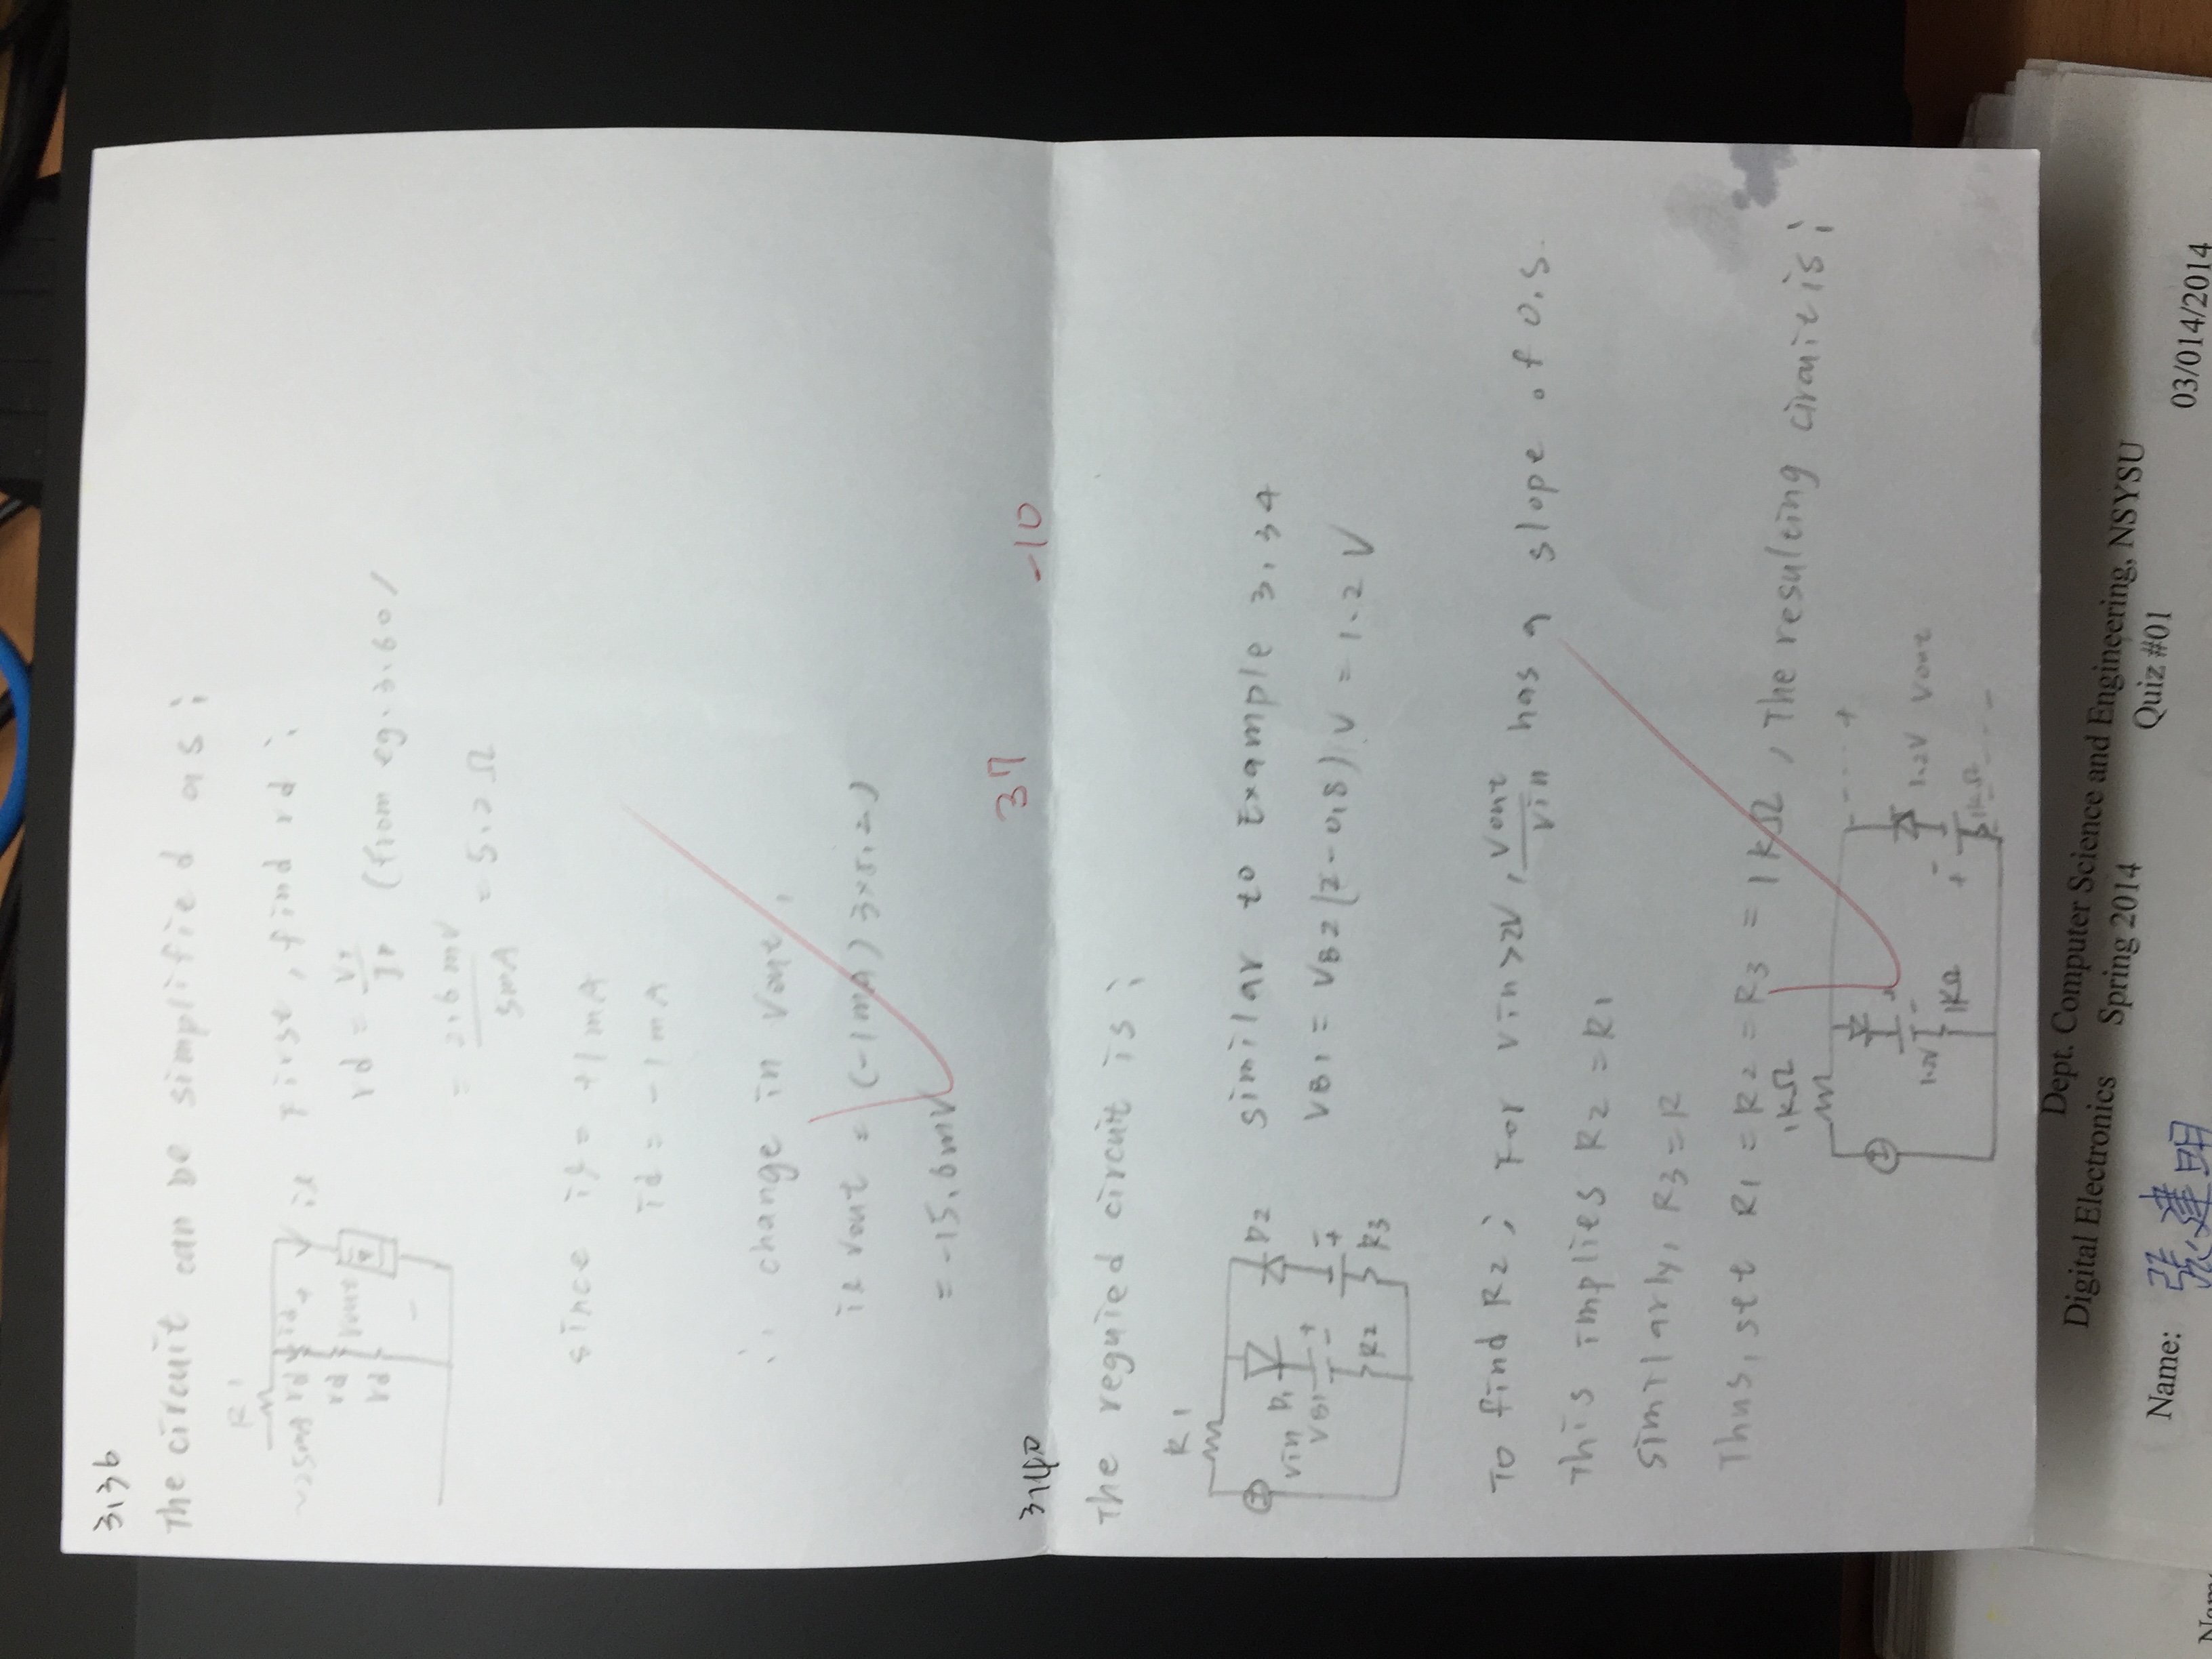 3.36
The circuit can be simplified as;
R1
~25mA rd id + il First, find rd;
rd Vout
rd -
rd = VT/ID (from eg. 3.60)
= 2.6 mV/5mA = 5.2 Ω
since il = +1 mA
id = -1 mA
∴ change in Vout,
il Vout = (-1mA) 3×5.2)
= -15.6mV
37 -10
3.40
The reguied circuit is;
R1
Vin D1 D2 similar to Example 3.34
VB1 + - - + VB1 = VB2 (2-0.8) V = 1.2 V
R2 R3
To find R2; For Vin>2V, Vout/Vin has a slope of 0.5.
This implies R2 = R1
Similarly, R3 = R
Thus, set R1 = R2 = R3 = 1kΩ, The resulting circuit is;
1kΩ
+
+ - 1.2V Vout
1.2V 1kΩ - + 1kΩ -
Dept. Computer Science and Engineering, NSYSU
Digital Electronics Spring 2014 Quiz #01
Name: 張建明 03/014/2014
Name